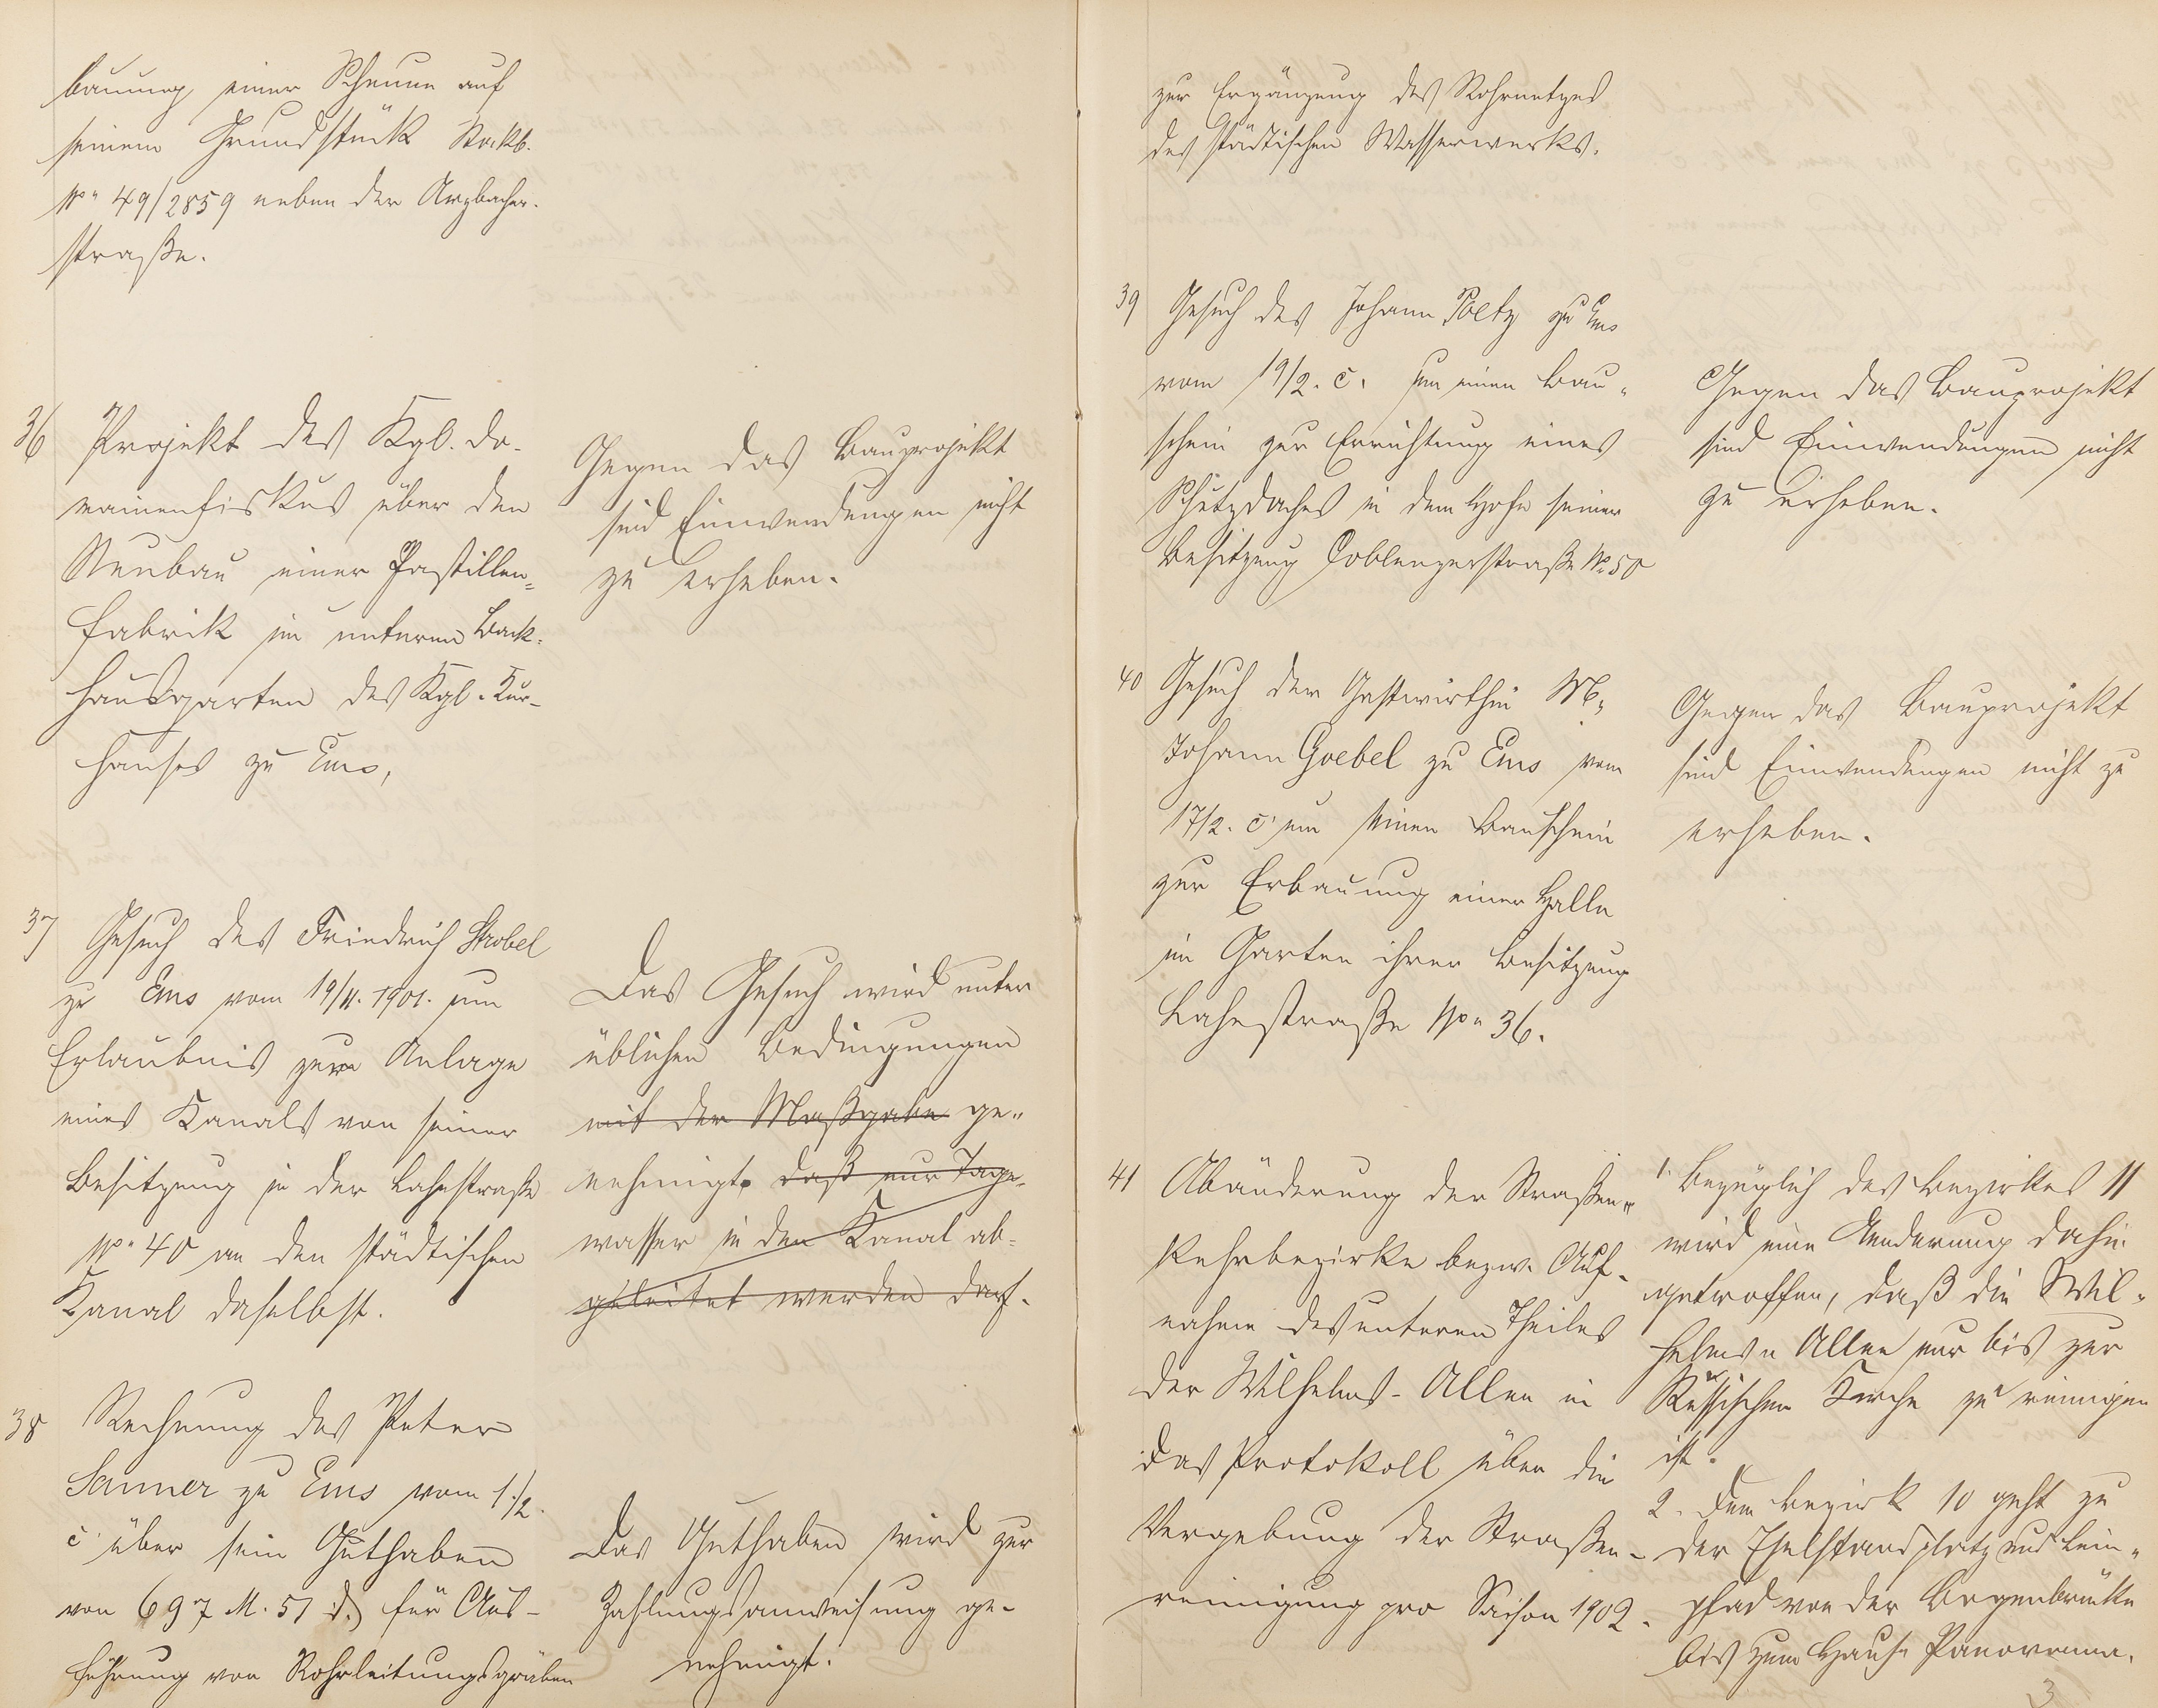 bauung einer Scheune auf
seinem Grundstück Stockb.
No. 49/2859 neben der Arzbacher-
straße.
36 Projekt des Kgl. Do-
mainenfiskus über den
Neubau einer Pastillen-
fabrik im unteren Back-
hausgarten des Kgl. Kur-
hauses zu Ems,
Gegen das Bauprojekt
sind Einwendungen nicht
zu erheben.
37 Gesuch des Friedrich Strobel
zu Ems vom 19/11. 1901. um
Erlaubnis zur Anlage
eines Kanals von seiner
Besitzung in der Lahnstraße
No. 40 an den städtischen
Kanal daselbst.
Das Gesuch wird unter
üblichen Bedingungen
mit der Maßgabe ge-
nehmigt. daß nur Tage-
wasser in den Kanal ab-
geleitet werden darf.
38 Rechnung des Peter
Sanner zu Ems vom 1./2.
c. über sein Guthaben
von 697 M. 51 d. für Aus-
führung von Rohrleitungsgräben
Das Guthaben wird zur
Zahlungsanweisung ge-
nehmigt.
zur Ergänzung des Rohrnetzes
des städtischen Wasserwerks.
39 Gesuch des Johann Poetz zu Ems
vom 19/2. c. um einen Bau-
schein zur Errichtung eines
Schutzdaches in dem Hofe seiner
Besitzung Coblenzerstraße No. 50
Gegen das Bauprojekt
sind Einwendungen nicht
zu erheben.
40 Gesuch der Gastwirthin W.
Johann Goebel zu Ems vom
17/2. c. um einen Bauschein
zur Erbauung einer Halle
im Garten ihrer Besitzung
Lahnstraße No. 36.
Gegen das Bauprojekt
sind Einwendungen nicht zu
erheben.
41 Abänderung der Straßen-
kehrbezirke bezw. Auf-
nahme des unteren Theiles
der Wilhelms-Allee in
das Protokoll über die
Vergebung der Straßen-
reinigung pro Saison 1902.
1. Bezüglich des Bezirkes 11
wird eine Aenderung dahin
getroffen, daß die Wil-
helms-Allee nur bis zur
Russischen Kirche zu reinigen
ist.
2. Dem Bezirk 10 geht zu
der Eselstandplatz und Lein-
pfad von der Bogenbrücke
bis zum Hause Panorama.
3